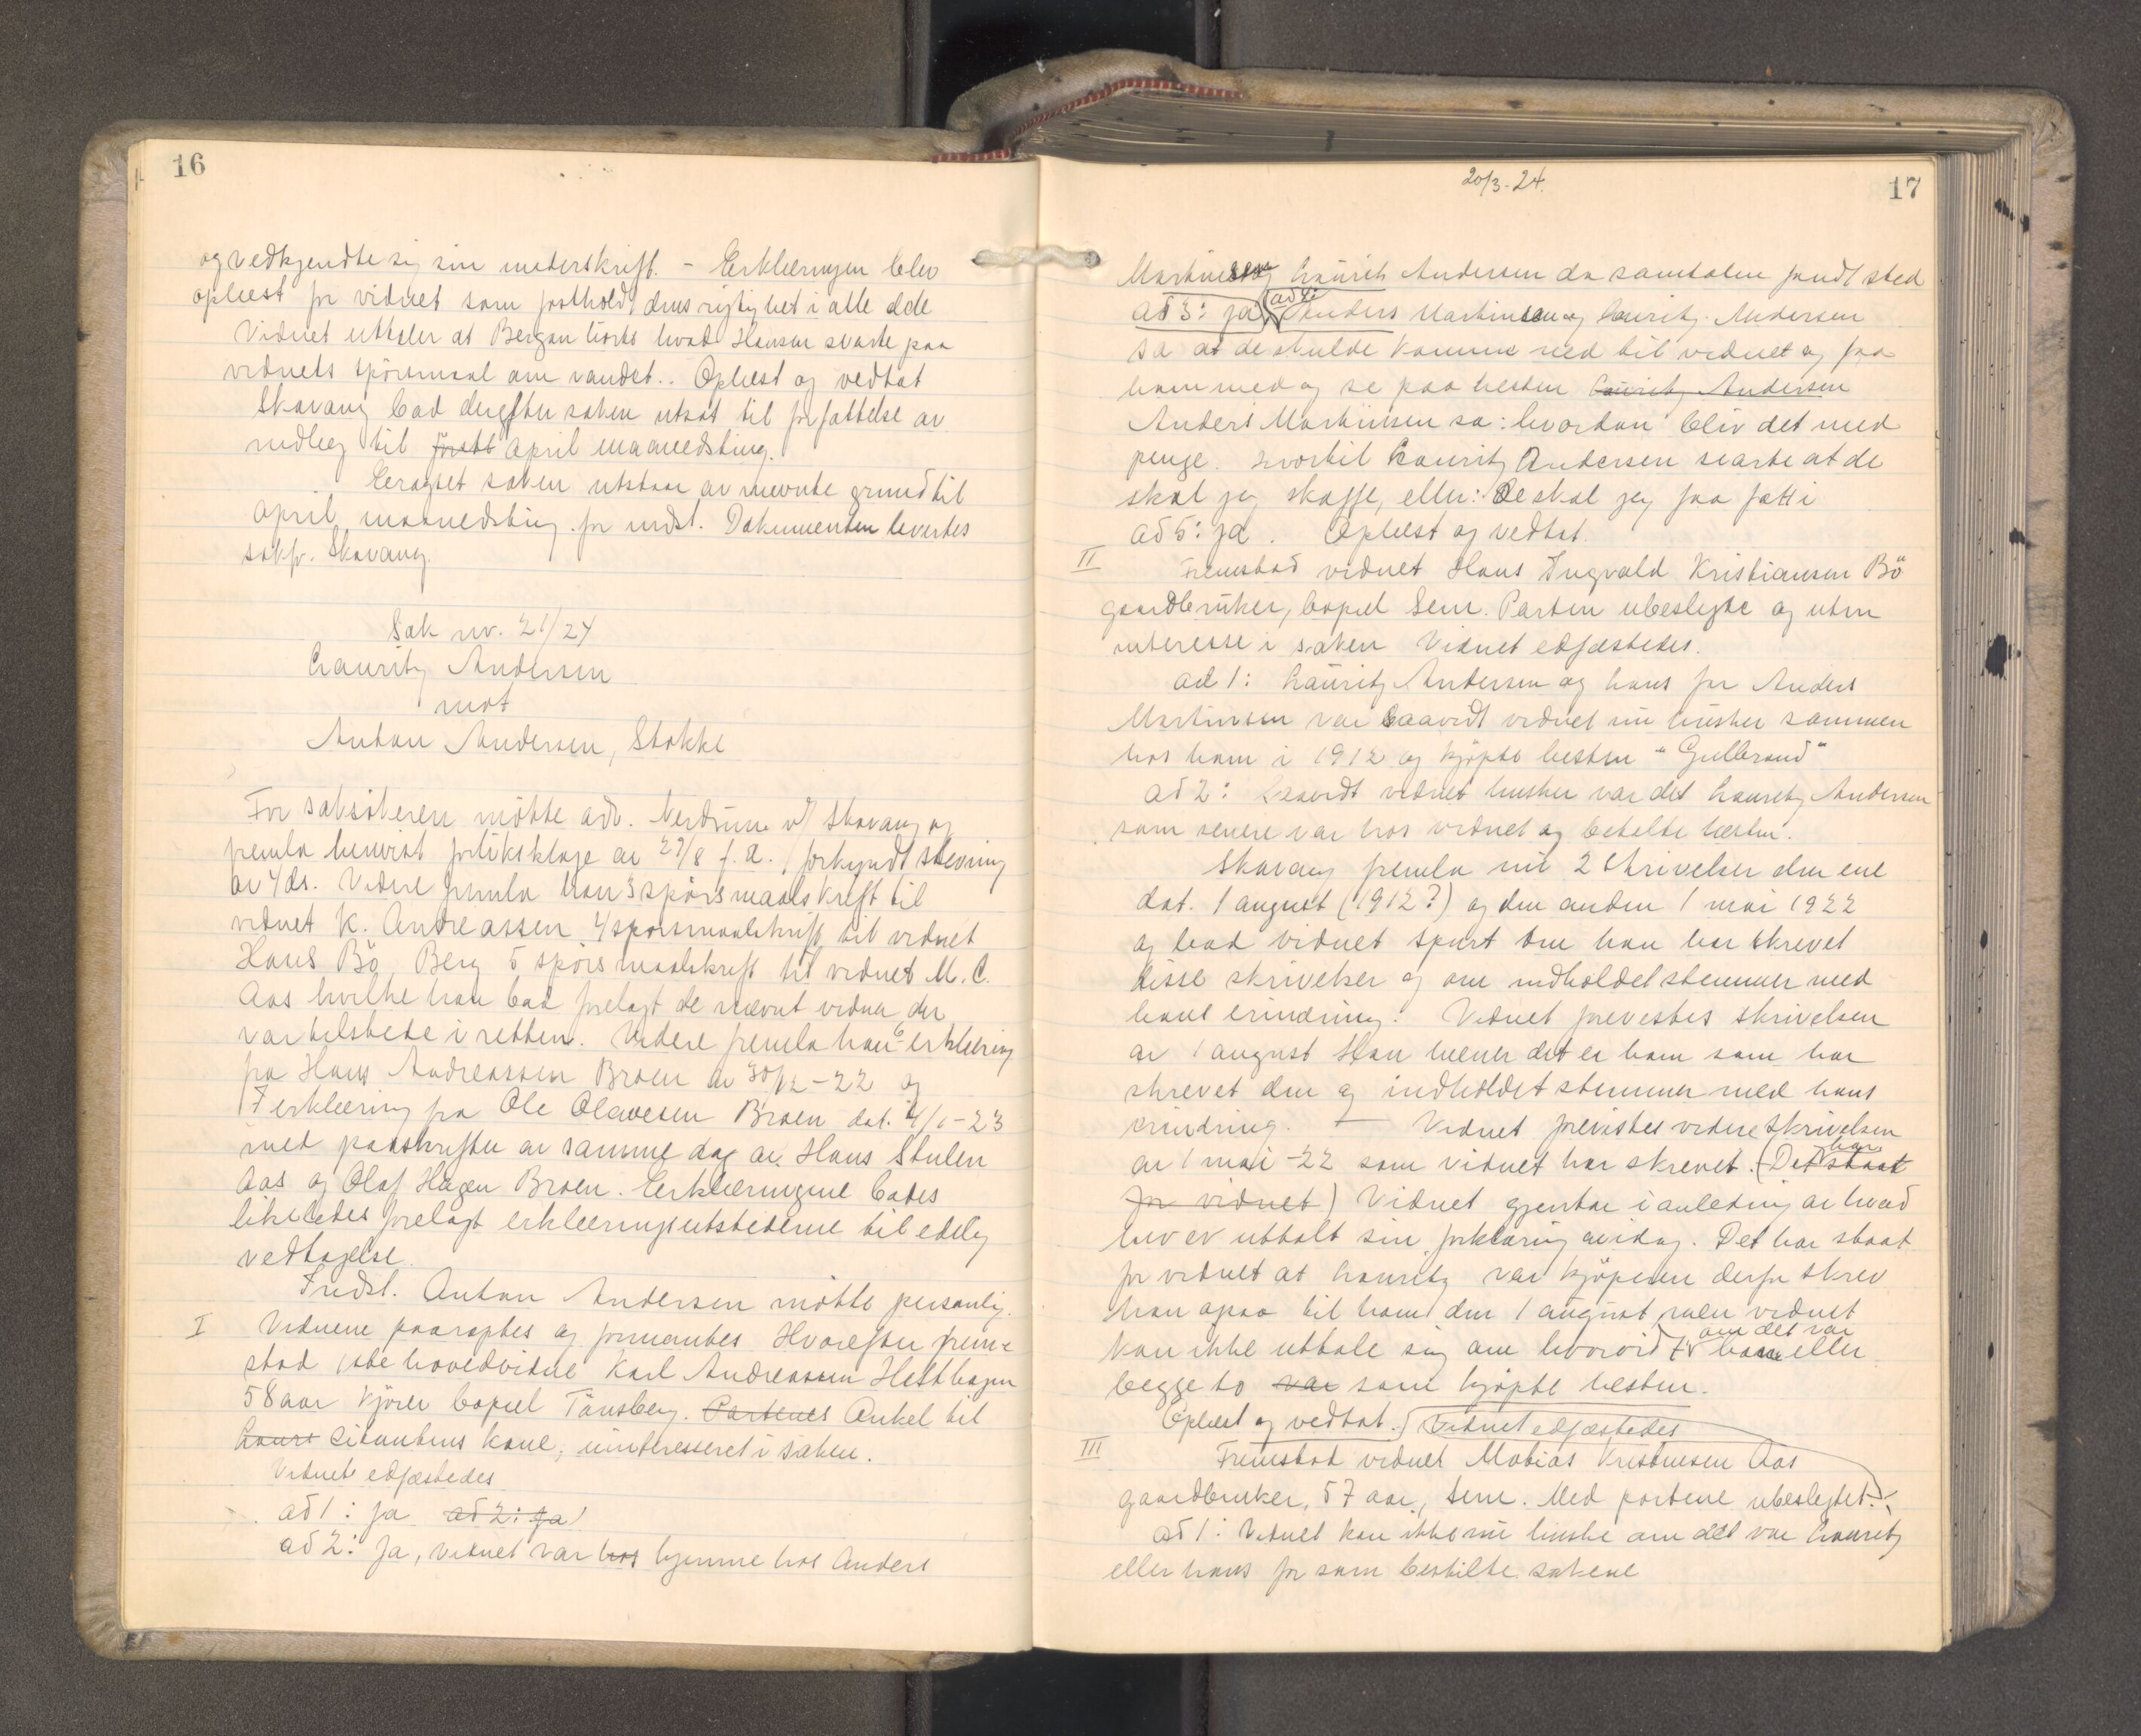 16
og vedkjendte sig sin underskrift. - Erklæringen blev
oplæst for vidnet som fastholdt dens rigtighet i alle dele
Vidnet uttaler at Bergan hörte hvad Hansen svarte paa
vidnets spörsmaal om vandet.. Oplæst og vedtat
Skavang bad derefter saken utsat til forfattelse av
indlæg til förste april maanedsting.
Eragtet saken utstaar av nævnte grund til
april maanedsting for indst. Dokumenten levertes
sakf. Skavang.
Sak nr. 21/24
Lauritz Andersen
mot
Anton Andersen, Stokke
For saksökeren mötte adv. Nerdrum v/ Skavang og
fremla henvist forliksklage av 27/8 f.a., forkyndt stevning
av 4ds. Videre fremla han 3 spörsmaalskrift til
vidnet K. Andreassen 4 spörsmaalskrift til vidnet
Hans Bö, Berg 5 spörsmaalskrift til vidnet M. C.
Aas hvilke han bad forelagt de nævnt vidner der
var tilstede i retten. Videre fremla han 6 erklæring
fra Hans Andreassen Broen av 30/12-22 og
7 erklæring fra Ole Olavesen Broen dat. 4/1-23
med paaskrifter av samme dag av Hans Stulen
Aas og Olaf Hagen Broen. Erklæringene bades
likeledes forelagt erklæringsutstederne til edelig
vedtagelse.
Indst. Anton Andersen mötte personlig.
I Vidnene paaroptes og formantes Hvorefter frem-
stod 1ste hovedvidne Karl Andreassen Hesthagen
58 aar kjörer bopæl Tönsberg. Partenes Onkel til
Laurs Citantens kone, uinteresseret i saken.
Vidnet edfæstedes
ad 1: ja ad 2: ja
ad 2: Ja, vidnet var hos hjemme hos Anders
20/3-24.
17
Martinsen og Lauritz Andersen da samtalen fandt sted
ad 3: ja ad 4: Anders Martinsen og Lauritz Andersen
sa at de skulde komme ned til vidnet og faa
ham med og se paa hesten Lauritz Andersen
Anders Martinsen sa: hvordan bliv det med
penge. hvortil Lauritz Andersen svarte at de
skal jeg skaffe, eller: De skal jeg faa fatt i
ad 5: ja. Oplæst og vedtat.
II Fremstod vidnet Hans Ingvald Kristiansen Bö
gaardbruker, bopæl Sem. Parten ubeslegtet og uten
interesse i saken Vidnet edfæstedes.
ad 1: Lauritz Andersen og hans far Anders
Martinsen var saavidt vidnet nu husker sammen
hos ham i 1912 og kjöpte hesten "Gulbrand"
ad 2: Saavidt vidnet husker var det Lauritz Andersen
som senere var hos vidnet og betalte hesten.
Skavang fremla nu 2 skrivelser den ene
dat. 1 august (1912?) og den anden 1 mai 1922
og bad vidnet spurt om han har skrevet
disse skrivelser og om indholdet stemmer med
hans erindring. Vidnet forevistes skrivelsen
av 1 august Han mener det er ham som har
skrevet den og indholdet stemmer med hans
erindring. - Vidnet forevistes videre skrivelsen
av 1 mai -22 som vidnet har skrevet. (Det har staat
for vidnet) Vidnet gjentar i anledning av hvad
her er uttalt sin forklaring av idag. Det har staat
for vidnet at Lauritz var kjöperen derfor skrev
han ogsaa til ham den 1 august, men vidnet
kan ikke uttale sig om hvorvidt om det var ham eller
begge to var som kjöpte hesten.
Oplæst og vedtat. Vidnet edfæstedes
III Fremstod vidnet Mobias Kristensen Aas
gaardbruker, 57 aar, Sem. Med partene ubeslegtet.
ad 1: Vidnet kan ikke nu huske om det var Lauritz
eller hans far som bestilte sakene